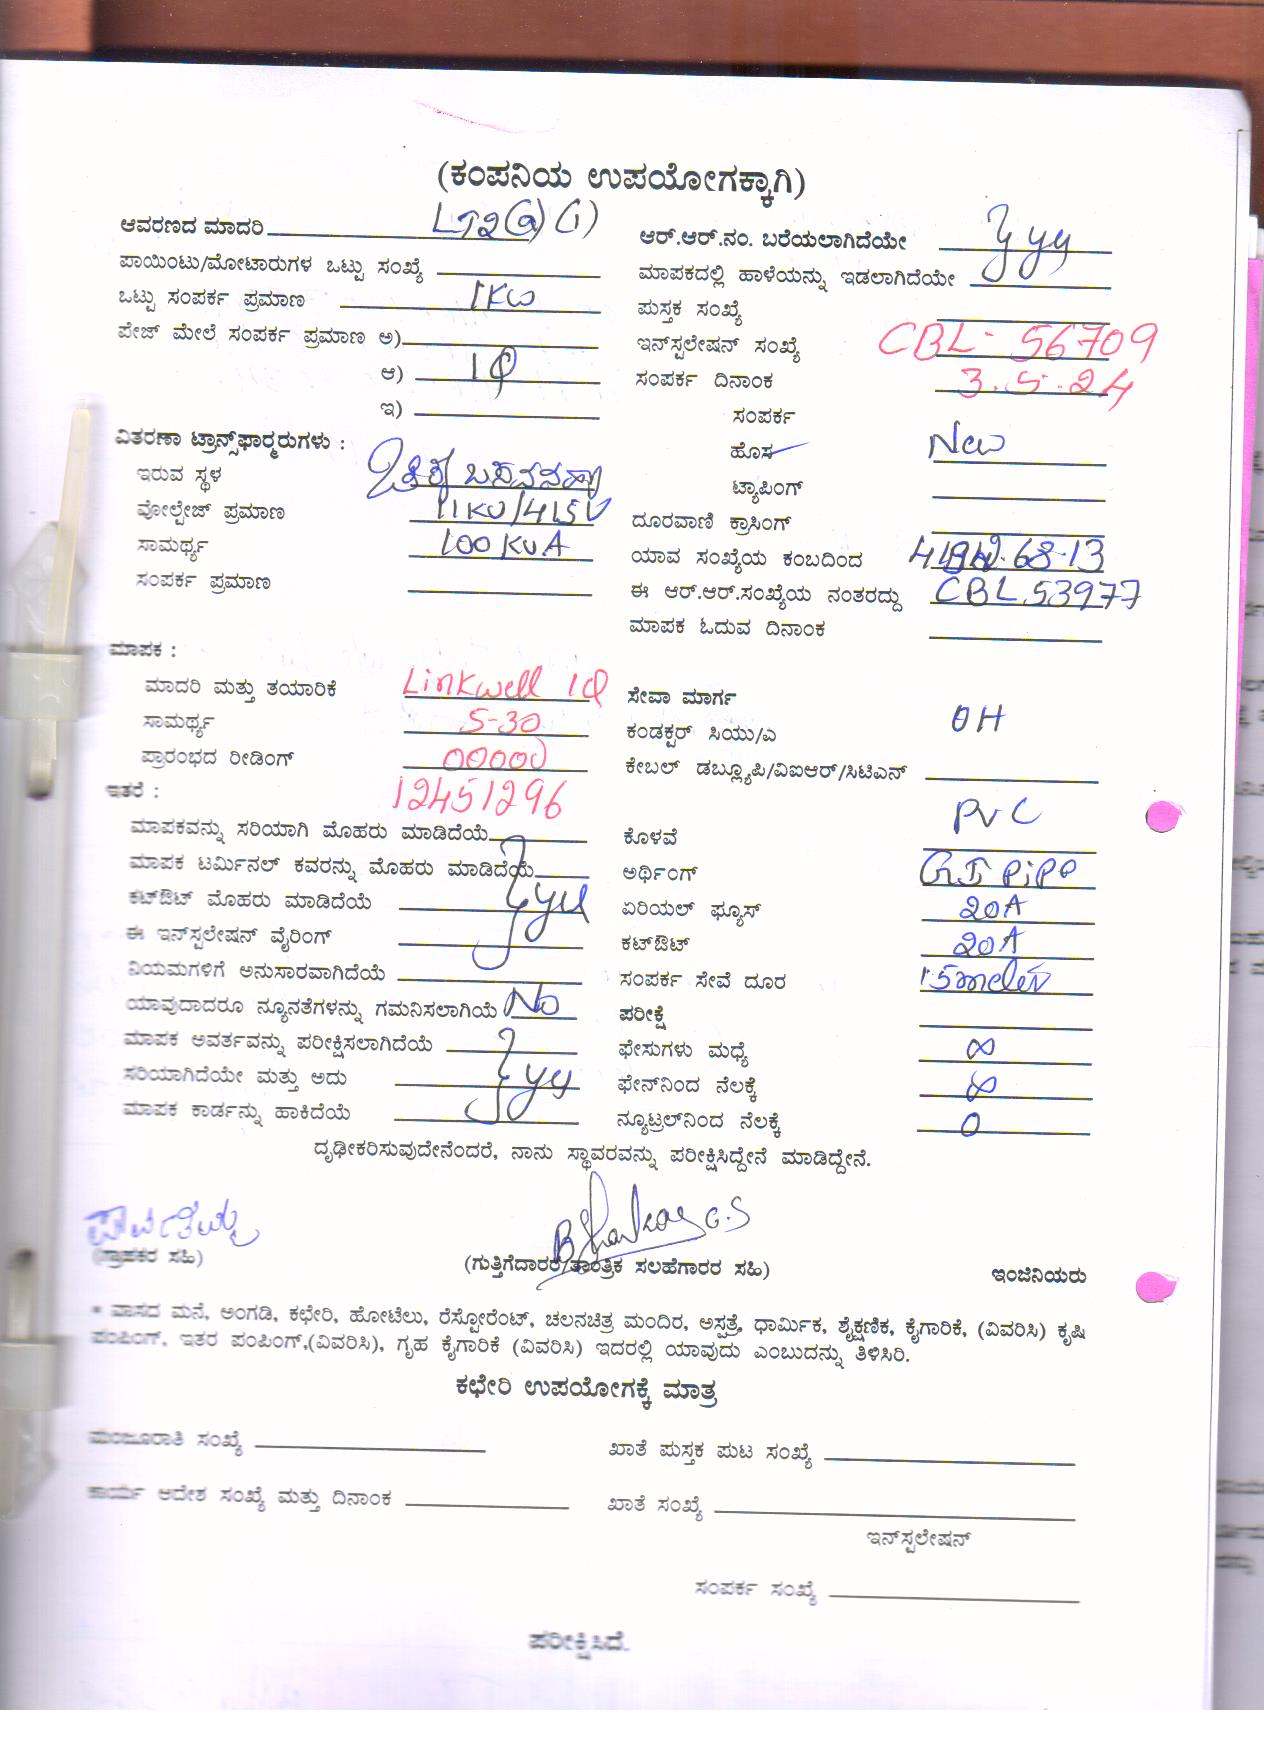 (ಕಂಪನಿಯ ಉಪಯೋಗಕ್ಕಾಗಿ)
ಆವರಣದ ಮಾದರಿ LT2(a)(1)
ಪಾಯಿಂಟು/ಮೋಟಾರುಗಳ ಒಟ್ಟು ಸಂಖ್ಯೆ
ಒಟ್ಟು ಸಂಪರ್ಕ ಪ್ರಮಾಣ 1KW
ಪೇಜ್ ಮೇಲೆ ಸಂಪರ್ಕ ಪ್ರಮಾಣ ಅ)
ಆ) 1φ
ಇ)
ವಿತರಣಾ ಟ್ರಾನ್ಸ್‌ಫಾರ್‍ಮರುಗಳು :
ಇರುವ ಸ್ಥಳ
ವೋಲ್ಟೇಜ್ ಪ್ರಮಾಣ 11KV/415V
ಸಾಮರ್ಥ್ಯ 100 KVA
ಸಂಪರ್ಕ ಪ್ರಮಾಣ
ಆರ್.ಆರ್.ನಂ. ಬರೆಯಲಾಗಿದೆಯೇ
ಮಾಪಕದಲ್ಲಿ ಹಾಳೆಯನ್ನು ಇಡಲಾಗಿದೆಯೇ
ಪುಸ್ತಕ ಸಂಖ್ಯೆ
ಇನ್‌ಸ್ಟಲೇಷನ್ ಸಂಖ್ಯೆ CBL- 56709
ಸಂಪರ್ಕ ದಿನಾಂಕ 3.5.24
ಸಂಪರ್ಕ
ಹೊಸ New
ಟ್ಯಾಪಿಂಗ್
ದೂರವಾಣಿ ಕ್ರಾಸಿಂಗ್
ಯಾವ ಸಂಖ್ಯೆಯ ಕಂಬದಿಂದ
ಈ ಆರ್.ಆರ್.ಸಂಖ್ಯೆಯ ನಂತರದ್ದು CBL53977
ಮಾಪಕ ಓದುವ ದಿನಾಂಕ
ಮಾಪಕ :
ಮಾದರಿ ಮತ್ತು ತಯಾರಿಕೆ Linkwell 1φ
ಸಾಮರ್ಥ್ಯ 5-30
ಪ್ರಾರಂಭದ ರೀಡಿಂಗ್ 00000
ಇತರೆ : 12451296
ಮಾಪಕವನ್ನು ಸರಿಯಾಗಿ ಮೊಹರು ಮಾಡಿದೆಯೆ
ಮಾಪಕ ಟರ್ಮಿನಲ್ ಕವರನ್ನು ಮೊಹರು ಮಾಡಿದೆಯೆ
ಕಟ್‌ಔಟ್ ಮೊಹರು ಮಾಡಿದೆಯೆ
ಈ ಇನ್‌ಸ್ಟಲೇಷನ್ ವೈರಿಂಗ್
ನಿಯಮಗಳಿಗೆ ಅನುಸಾರವಾಗಿದೆಯೆ
ಯಾವುದಾದರೂ ನ್ಯೂನತೆಗಳನ್ನು ಗಮನಿಸಲಾಗಿಯೆ No
ಮಾಪಕ ಅವರ್ತವನ್ನು ಪರೀಕ್ಷಿಸಲಾಗಿದೆಯೆ
ಸರಿಯಾಗಿದೆಯೇ ಮತ್ತು ಅದು
ಮಾಪಕ ಕಾರ್ಡನ್ನು ಹಾಕಿದೆಯೆ
ಸೇವಾ ಮಾರ್ಗ
ಕಂಡಕ್ಟರ್ ಸಿಯು/ಎ OH
ಕೇಬಲ್ ಡಬ್ಲ್ಯೂಪಿ/ವಿಐಆರ್/ಸಿಟಿಎನ್
ಕೊಳವೆ PVC
ಅರ್ಥಿಂಗ್ GI Pipe
ಏರಿಯಲ್ ಫ್ಯೂಸ್ 20A
ಕಟ್‌ಔಟ್ 20A
ಸಂಪರ್ಕ ಸೇವೆ ದೂರ 15meter
ಪರೀಕ್ಷೆ
ಫೇಸುಗಳು ಮಧ್ಯೆ ∞
ಫೇನ್‌ನಿಂದ ನೆಲಕ್ಕೆ ∞
ನ್ಯೂಟ್ರಲ್‌ನಿಂದ ನೆಲಕ್ಕೆ 0
ದೃಢೀಕರಿಸುವುದೇನೆಂದರೆ, ನಾನು ಸ್ಥಾವರವನ್ನು ಪರೀಕ್ಷಿಸಿದ್ದೇನೆ ಮಾಡಿದ್ದೇನೆ.
(ಗ್ರಾಹಕರ ಸಹಿ)
(ಗುತ್ತಿಗೆದಾರರ/ತಾಂತ್ರಿಕ ಸಲಹೆಗಾರರ ಸಹಿ)
ಇಂಜಿನಿಯರು
* ವಾಸದ ಮನೆ, ಅಂಗಡಿ, ಕಛೇರಿ, ಹೋಟೆಲು, ರೆಸ್ಟೋರೆಂಟ್, ಚಲನಚಿತ್ರ ಮಂದಿರ, ಅಸ್ಪತ್ರೆ, ಧಾರ್ಮಿಕ, ಶೈಕ್ಷಣಿಕ, ಕೈಗಾರಿಕೆ, (ವಿವರಿಸಿ) ಕೃಷಿ
ಪಂಪಿಂಗ್, ಇತರ ಪಂಪಿಂಗ್,(ವಿವರಿಸಿ), ಗೃಹ ಕೈಗಾರಿಕೆ (ವಿವರಿಸಿ) ಇದರಲ್ಲಿ ಯಾವುದು ಎಂಬುದನ್ನು ತಿಳಿಸಿರಿ.
ಕಛೇರಿ ಉಪಯೋಗಕ್ಕೆ ಮಾತ್ರ
ಮಂಜೂರಾತಿ ಸಂಖ್ಯೆ
ಖಾತೆ ಪುಸ್ತಕ ಪುಟ ಸಂಖ್ಯೆ
ಕಾರ್ಯ ಆದೇಶ ಸಂಖ್ಯೆ ಮತ್ತು ದಿನಾಂಕ
ಖಾತೆ ಸಂಖ್ಯೆ
ಇನ್‌ಸ್ಟಲೇಷನ್
ಸಂಪರ್ಕ ಸಂಖ್ಯೆ
ಪರೀಕ್ಷಿಸಿದೆ.